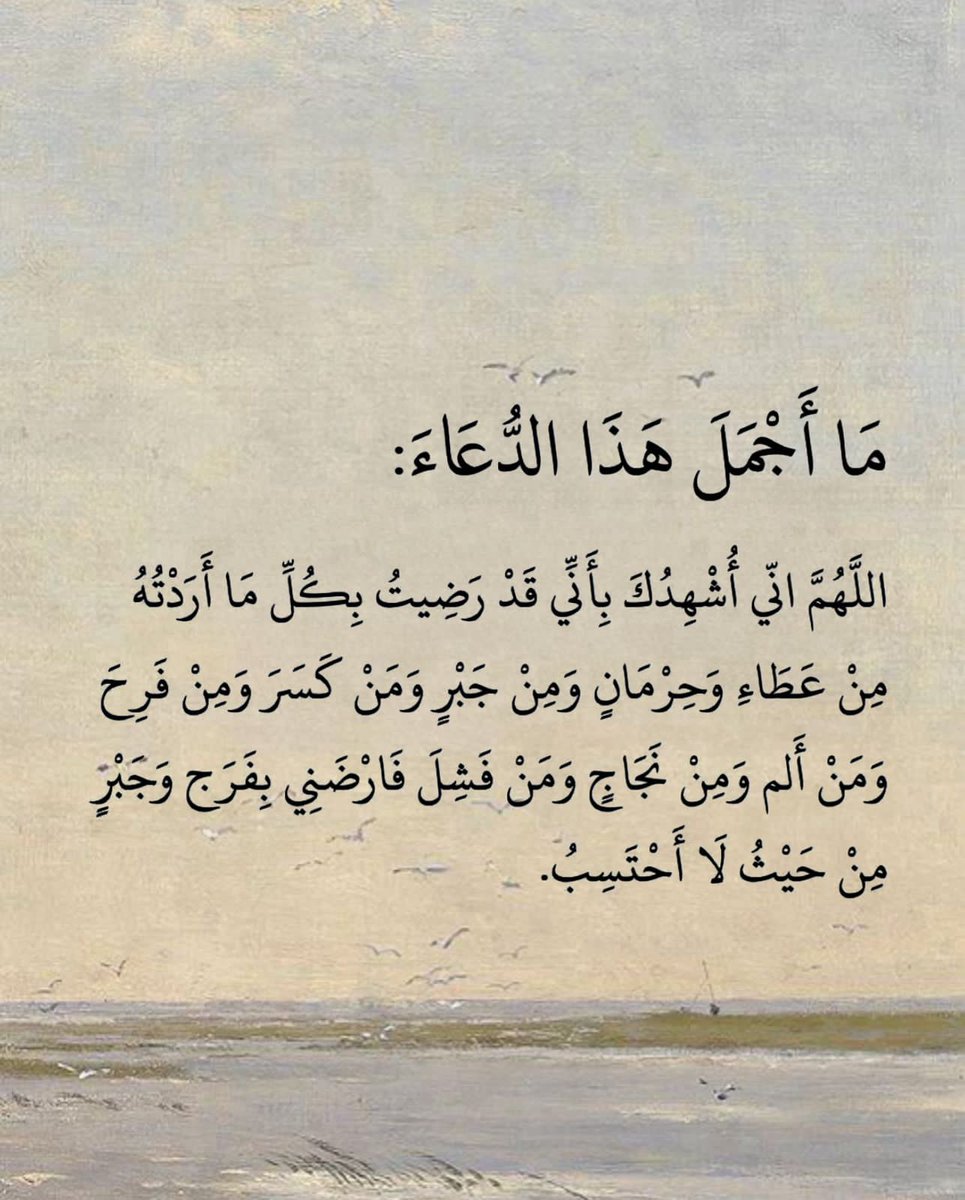 مَا أَجْمَلَ هَذَا الدُّعَاءَ:
اللَّهُمَّ انّي أُشْهِدُكَ بِأَنِّي قَدْ رَضِيتُ بِكُلِّ مَا أَرَدْتُهُ
مِنْ عَطَاءِ وَحِرْمَانٍ وَمِنْ جَبْرٍ وَمَنْ كَسَرَ وَمِنْ فَرِحَ
وَمَنْ أَلم وَمِنْ نَجَاحٍ وَمَنْ فَشِلَ فَارْضَنِي بِفَرَج وَجَبْرٍ
مِنْ حَيْثُ لَا أَحْتَسِبُ.